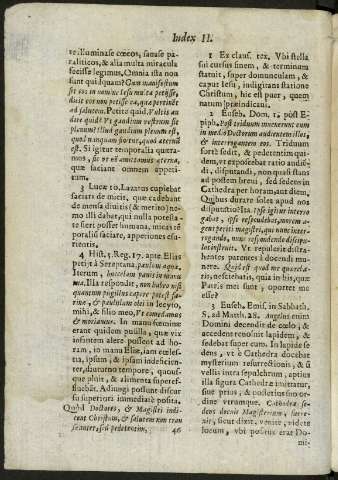 Index II.
re. Illuminase cœcos, sanase pa-
raliticos, & alia multa miracula
fecisse legimus. Omnia ista non
sunt quidquam? Cum manifestum
sit eos in nomine Iesu multa petisse,
dicit eos non petisse ea, quæ pertinēt
ad salutem. Petite quid. Vultis au
dire quid? Vt gaudium vestrum sit
plenum? Illud gaudium plenum est,
quod nunquam finitur, quod æternū
est. Si igitur temporalia quæra-
mus, sic vt nō amittamus æterna,
quæ satiant omnem appeti-
tum.
3 Lucæ 16. Lazarus cupiebat
saciari de micis, quæ cadebant
de mensa diuitis (& meritò) ne-
mo illi dabat, qui nulla potesta-
te fieri potest humana, micas tē
poralis saciare, appetitiones esu-
rientis.
4 Hist. 3. Reg. 17. apte. Elias
petijt à Sereptana paulum aquæ,
Iterum, buccelam panis in manu
tua. Illa respondit, non habeo nisi
quantum pugillus capere potest fa-
rinæ, & paululum olei in lecyto,
mihi, & filio meo, Vt comedamus
& moriamur. In manu fœminæ
erant quidem pusilla, quæ vix
infantem alere possent ad ho-
ram, in manu Eliæ, tam cœlest-
tia, ipsam, & ipsam indeficien-
ter, diuturno tempore, quous-
que pluit, & alimenta superef-
fluebāt. Adiungi possunt discur
su superiori immediatè posita.
Quòd Doctores, & Magistri indi-
cent Christum, & salutem non tran
seanter, sed pedetentim. 46
1 Ex claus. tex. Vbi stella
sui cursus finem, & terminum
statuit, super domunculam, &
caput Iesu, indigitans statione
Christum, hic est puer, quem
natum lprædicaui.
2 Euseb. Dom. 1. post E-
piph. Post triduum inuenerunt eum
in medio Doctorum audientem illos,
& interrogantem eos. Triduum
forsè sedit, & pedetentim qui-
dem, vt exposcebat ratio audiē-
di, disputandi, non quasi stans
ad postem breui, sed sedens in
Cathedra per horam, aut diem,
Quibus durare solet apud nos
disputatio? Ita ipse igitur interro
gabat, ipsi respondebat, non tam a-
gere periti magistri, qui nunc inter-
rogando, nunc respondendo discipu-
los instruit. Vt repulerit distra-
hentes parentes à docendi mu-
nere. Quid est quod me quæreba-
tis, nesciebatis, quia in his, quæ
Patris mei sunt, oportet me
esse?
3 Euseb. Emis. in Sabbath.
S. ad Matth. 28. Angelus enim
Domini decendit de cœlo, &
accedens reuoluit lapidem, &
sedebat super eum. In lapide se
dens, vt è Cathedra docebat
mysterium resurrectionis, & si
velli intra sepulchrum, aptius
illa figura Cathedræ imittatur,
siue prius, & posterius sint or-
dine vtrumque. Cathedræ se-
dens docuit Magisterium, surre-
xit, sicut dixit, venite, videte
locum, vbi positus erat Do-
mi-